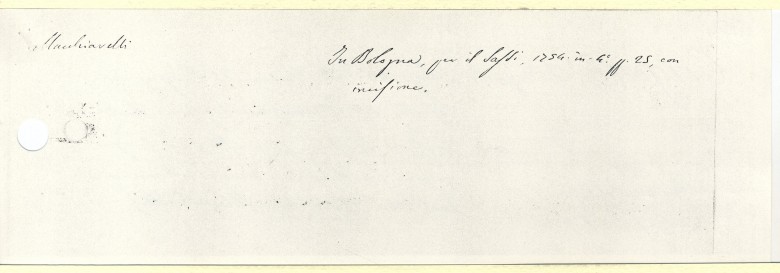 Macchiavelli
In Bologna, per il Sassi, 1754. in-4.° pp. 25, con
incisione.